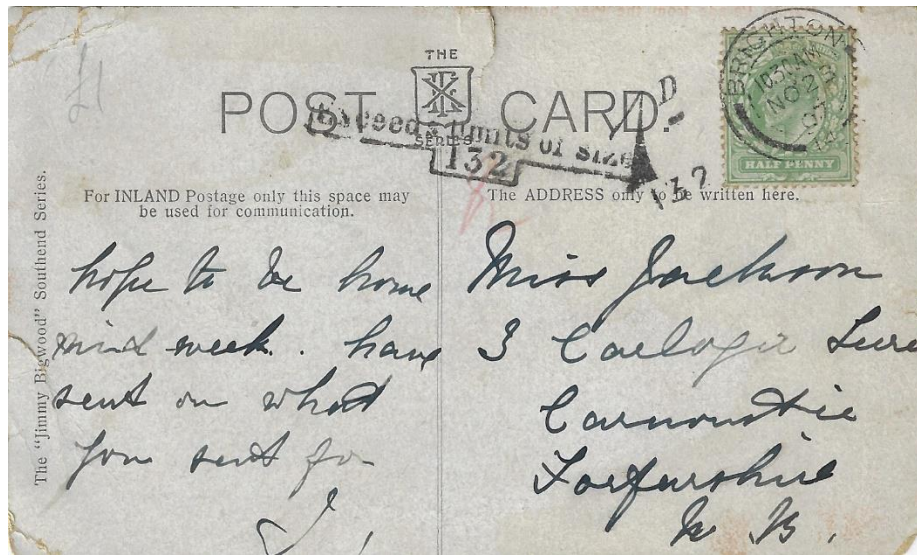 £1
THE
SERIES
POST CARD.
Exceeds limits of size
132
1D
132
BRIGHTON
NO 2
07
HALF PENNY
The "Jimmy Bigwood" Southend Series.
For INLAND Postage only this space may
be used for communication.
The ADDRESS only to be written here.
hope to be home
week. have
sent on what
you sent for
J.
Miss Jackson
3
Carnoustie
Forfarshire
N. B.